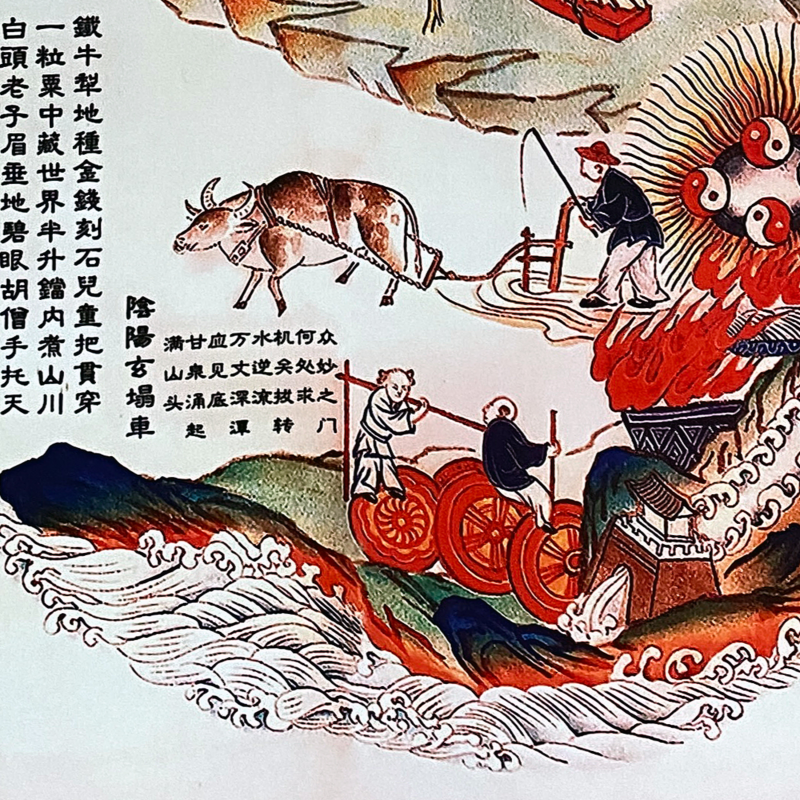 众妙之门
何处求
机关拔转
水逆流
万丈深潭
应见底
甘泉涌起
满山头
陰陽玄塌車
鐵牛犁地種金錢刻石兒童把貫穿
一粒粟中藏世界半升鐺内煮山川
白頭老子眉垂地碧眼胡僧手托天